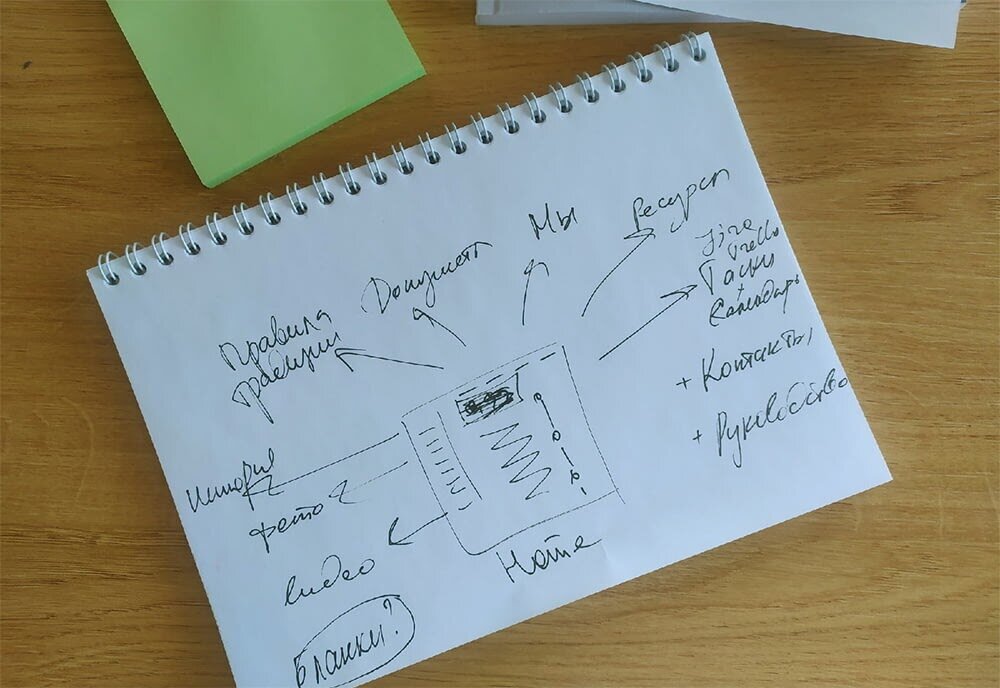 Мы
Ресурсы
Документы
Jira
Trello
Таски
+
Календарь
Правила
Традиции
+ Контакты
+ Руководство
История
Фото
Видео
Home
Бланки?